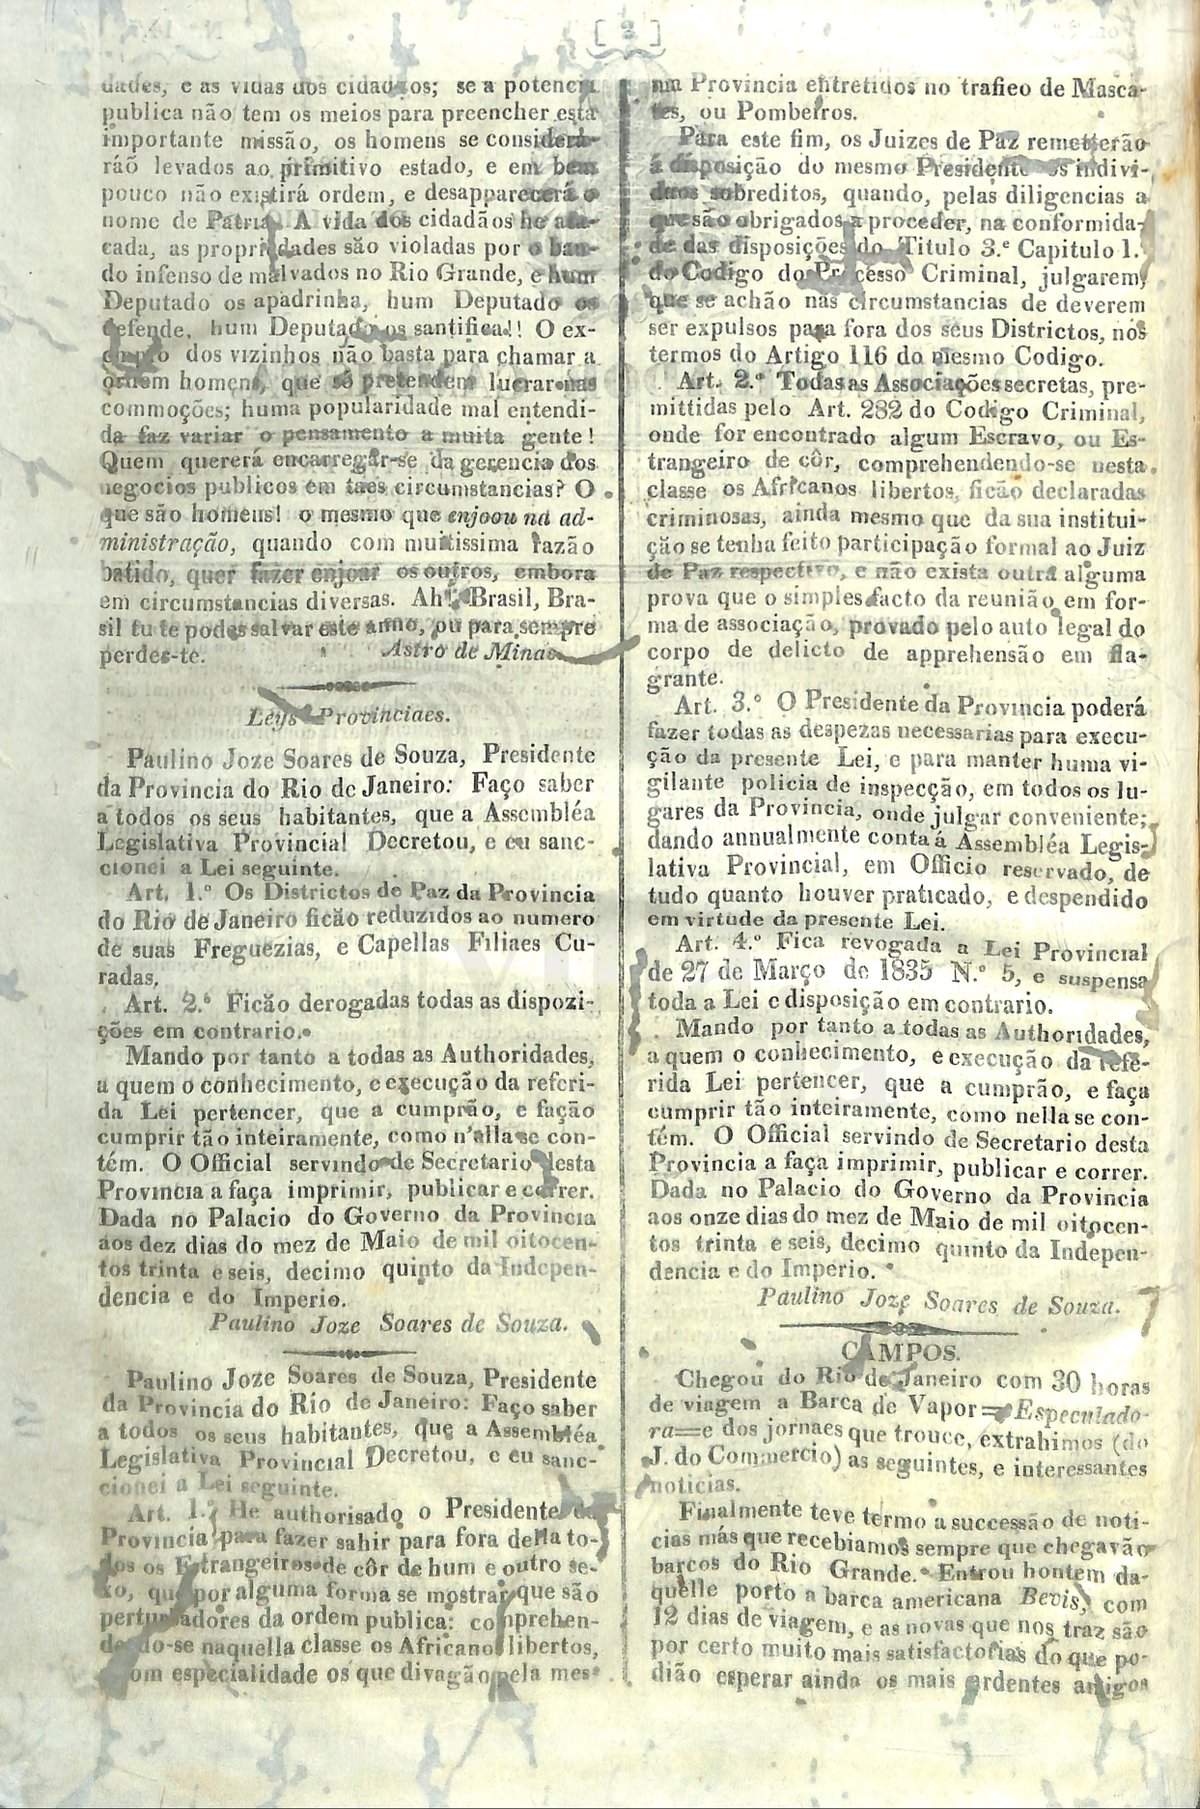 [ 2 ]
dades, e as vidas dos cidadãos; se a potencia
publica não tem os meios para preencher esta
importante missão, os homens se considera-
ráõ levados ao primitivo estado, e em bem
pouco não existirá ordem, e desapparecerá o
nome de Patria. A vida dos cidadãos he ata-
cada, as propriedades são violadas por o ban-
do infenso de malvados no Rio Grande, e hum
Deputado os apadrinha, hum Deputado os
defende, hum Deputado os santifica!! O ex-
emplo dos vizinhos não basta para chamar a
ordem homens, que só pretendem lucrar nas
commoções; huma popularidade mal entendi-
da faz variar o pensamento a muita gente!
Quem quererá encarregar-se da gerencia dos
negocios publicos em taes circumstancias? O
que são homens! o mesmo que enjoou na ad-
ministração, quando com muitissima razão
batido, quer fazer enjoar os outros, embora
em circumstancias diversas. Ah! Brasil, Bra-
sil tu te podes salvar este anno, ou para sempre
perdes-te. Astro de Minas.
Leys Provinciaes.
Paulino Joze Soares de Souza, Presidente
da Provincia do Rio de Janeiro: Faço saber
a todos os seus habitantes, que a Assembléa
Legislativa Provincial Decretou, e eu sanc-
cionei a Lei seguinte.
Art. 1.º Os Districtos de Paz da Provincia
do Rio de Janeiro ficão reduzidos ao numero
de suas Freguezias, e Capellas Filiaes Cu-
radas.
Art. 2.º Ficão derogadas todas as dispozi-
ções em contrario.
Mando por tanto a todas as Authoridades,
a quem o conhecimento, e execução da referi-
da Lei pertencer, que a cumprão, e fação
cumprir tão inteiramente, como n'ella se con-
tém. O Official servindo de Secretario desta
Provincia a faça imprimir, publicar e correr.
Dada no Palacio do Governo da Provincia
aos dez dias do mez de Maio de mil oitocen-
tos trinta e seis, decimo quinto da Indepen-
dencia e do Imperio.
Paulino Joze Soares de Souza.
Paulino Joze Soares de Souza, Presidente
da Provincia do Rio de Janeiro: Faço saber
a todos os seus habitantes, que a Assembléa
Legislativa Provincial Decretou, e eu sanc-
cionei a Lei seguinte.
Art. 1.º He authorisado o Presidente da
Provincia para fazer sahir para fora della to-
dos os Estrangeiros de côr de hum e outro se-
xo, que por alguma forma se mostrar que são
perturbadores da ordem publica: comprehen-
dendo-se naquella classe os Africanos libertos,
com especialidade os que divagão pela mes-
ma Provincia entretidos no trafico de Masca-
tes, ou Pombeiros.
Para este fim, os Juizes de Paz remetterão
á disposição do mesmo Presidente os indivi-
duos sobreditos, quando, pelas diligencias a
que são obrigados a proceder, na conformida-
de das disposições do Titulo 3.º Capitulo 1.
do Codigo do Processo Criminal, julgarem,
que se achão nas circumstancias de deverem
ser expulsos para fora dos seus Districtos, nos
termos do Artigo 116 do mesmo Codigo.
Art. 2.º Todas as Associações secretas, pre-
mittidas pelo Art. 282 do Codigo Criminal,
onde for encontrado algum Escravo, ou Es-
trangeiro de côr, comprehendendo-se nesta
classe os Africanos libertos, ficão declaradas
criminosas, ainda mesmo que da sua institui-
ção se tenha feito participação formal ao Juiz
de Paz respectivo, e não exista outra alguma
prova que o simples facto da reunião em for-
ma de associação, provado pelo auto legal do
corpo de delicto de apprehensão em fla-
grante.
Art. 3.º O Presidente da Provincia poderá
fazer todas as despezas necessarias para execu-
ção da presente Lei, e para manter huma vi-
gilante policia de inspecção, em todos os lu-
gares da Provincia, onde julgar conveniente;
dando annualmente conta á Assembléa Legis-
lativa Provincial, em Officio reservado, de
tudo quanto houver praticado, e despendido
em virtude da presente Lei.
Art. 4.º Fica revogada a Lei Provincial
de 27 de Março de 1835 N.º 5, e suspensa
toda a Lei e disposição em contrario.
Mando por tanto a todas as Authoridades,
a quem o conhecimento, e execução da refe-
rida Lei pertencer, que a cumprão, e faça
cumprir tão inteiramente, como nella se con-
tém. O Official servindo de Secretario desta
Provincia a faça imprimir, publicar e correr.
Dada no Palacio do Governo da Provincia
aos onze dias do mez de Maio de mil oitocen-
tos trinta e seis, decimo quinto da Indepen-
dencia e do Imperio.
Paulino Joze Soares de Souza.
CAMPOS.
Chegou do Rio de Janeiro com 30 horas
de viagem a Barca de Vapor=Especulado-
ra=e dos jornaes que trouce, extrahimos (do
J. do Commercio) as seguintes, e interessantes
noticias.
Finalmente teve termo a successão de noti-
cias más que recebiamos sempre que chegavão
barcos do Rio Grande. Entrou hontem da-
quelle porto a barca americana Bevis, com
12 dias de viagem, e as novas que nos traz são
por certo muito mais satisfactorias do que po-
dião esperar ainda os mais ardentes amigos